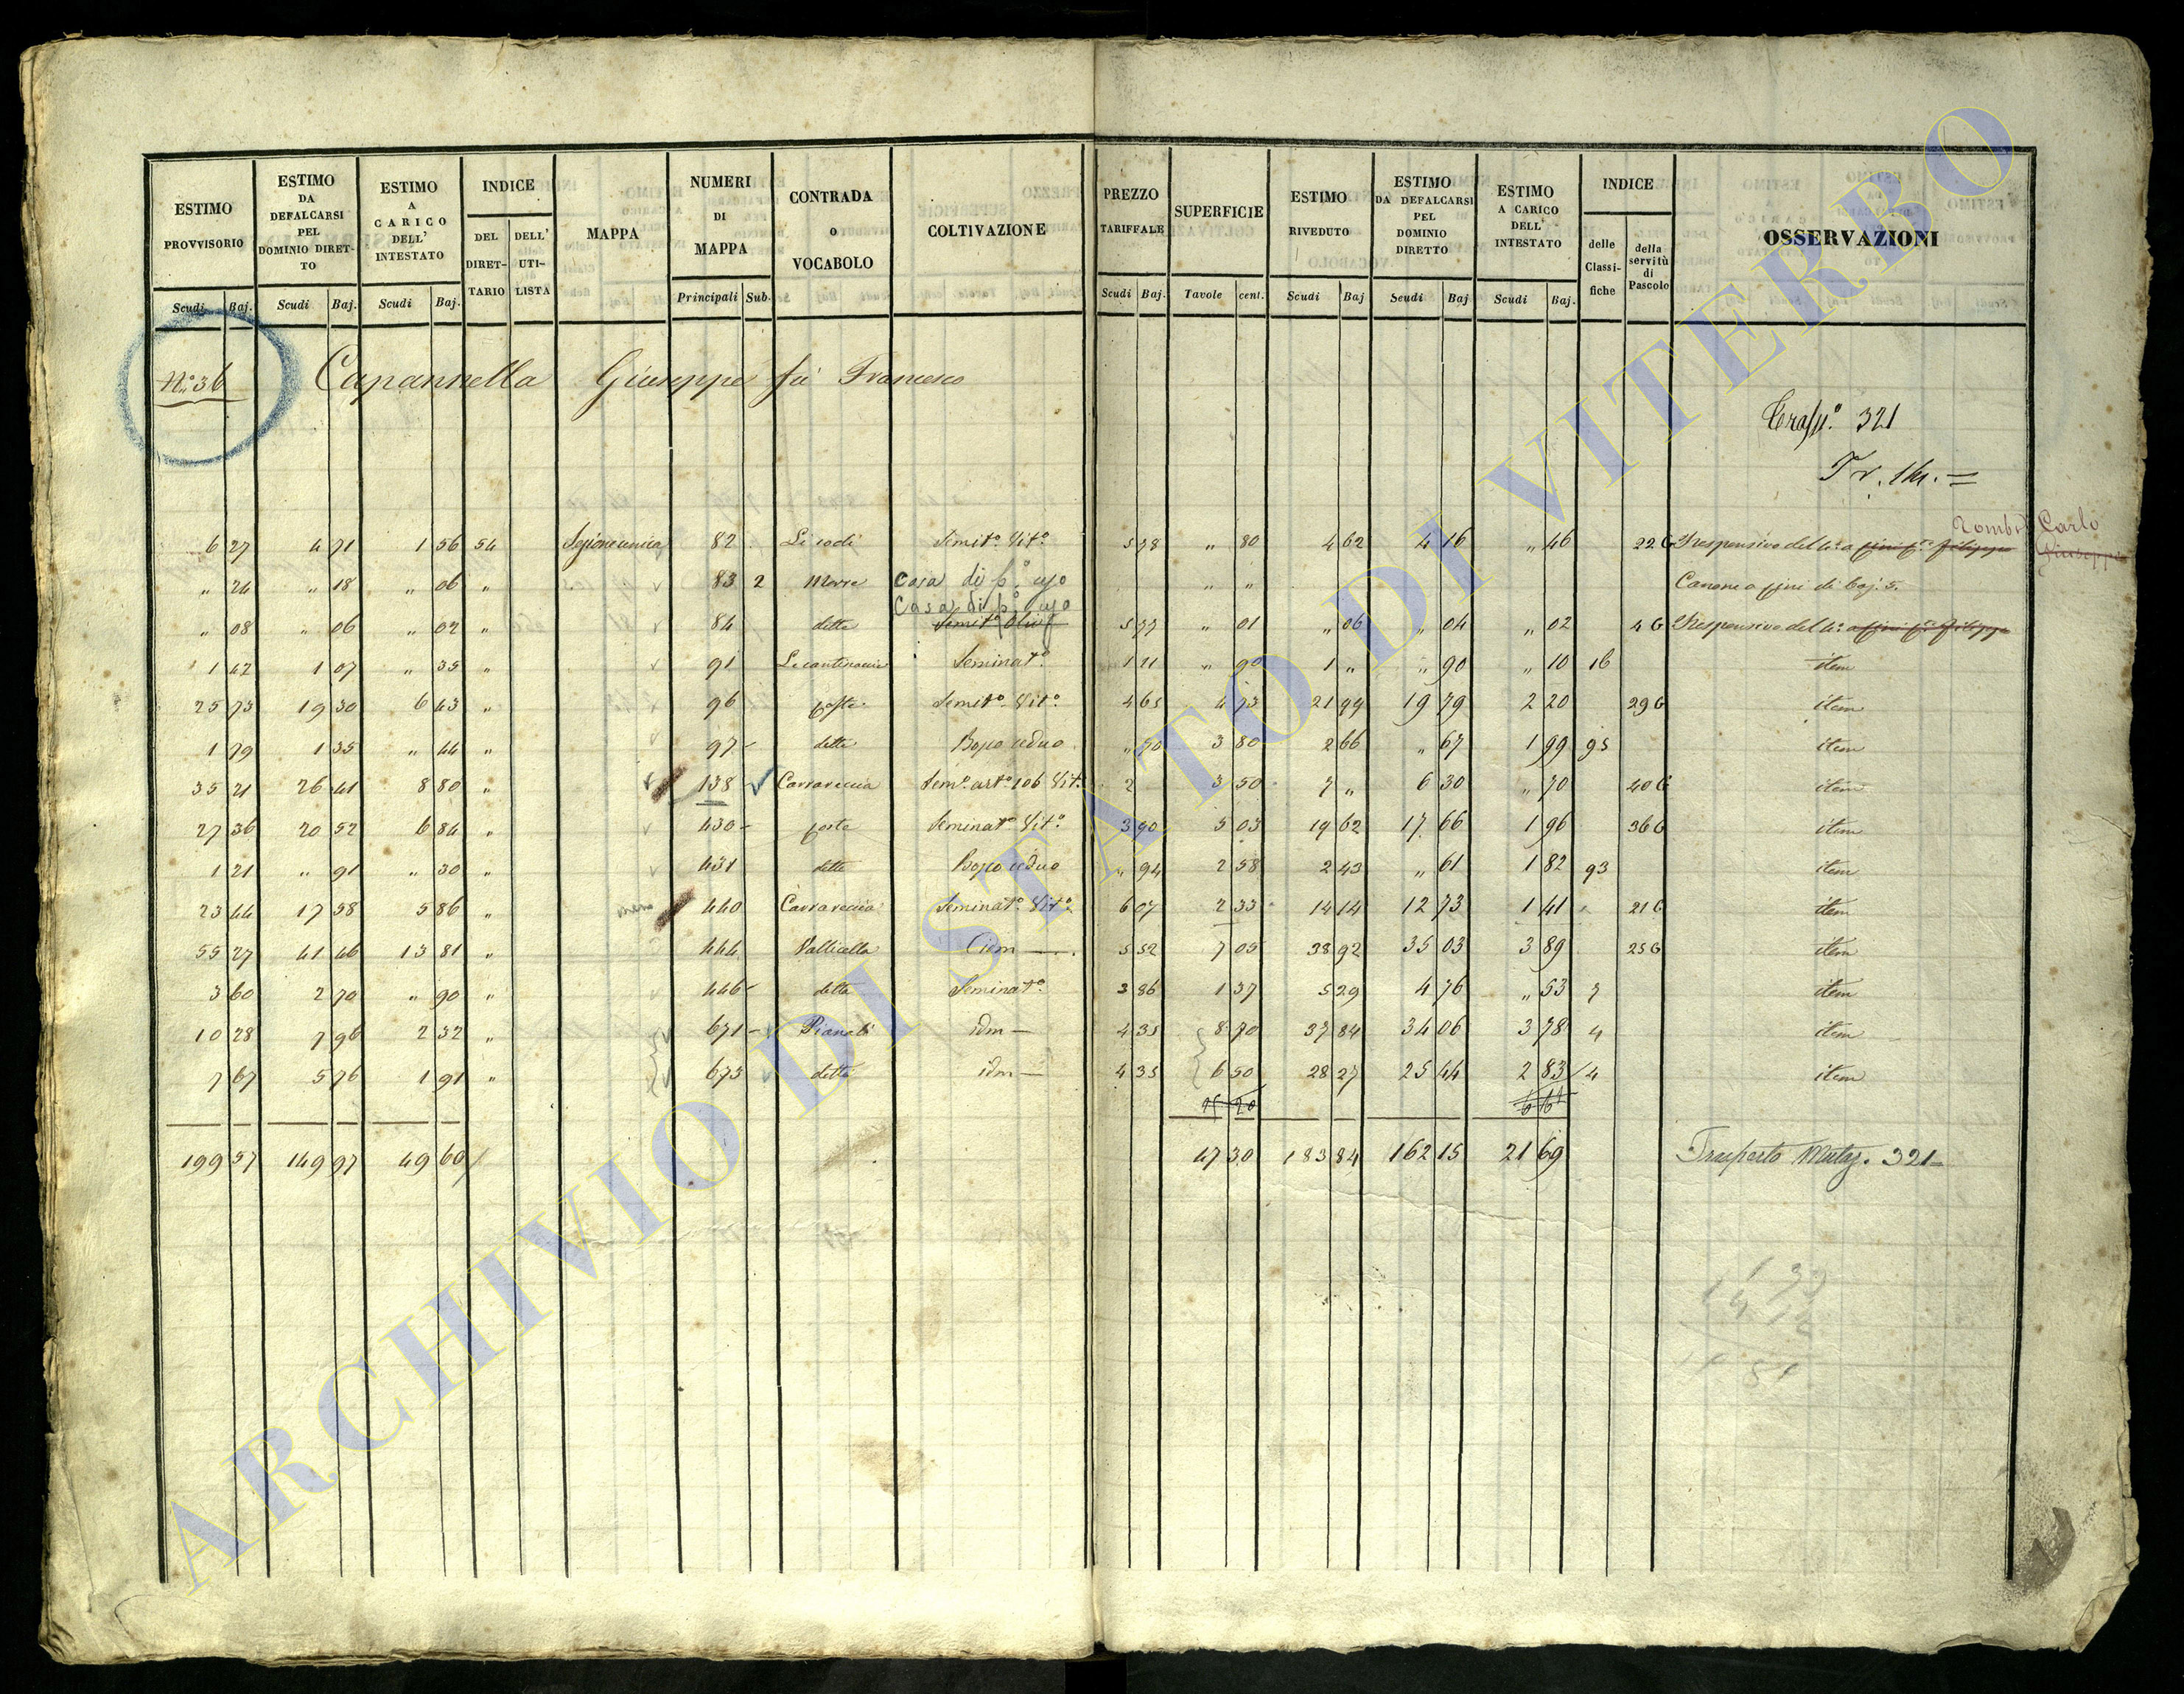 ESTIMO PROVVISORIO | ESTIMO DA DEFALCARSI PEL DOMINIO DIRETTO | ESTIMO A CARICO DELL' INTESTATO | INDICE | MAPPA | NUMERI DI MAPPA | CONTRADA o VOCABOLO | COLTIVAZIONE | PREZZO TARIFFALE | SUPERFICIE | ESTIMO RIVEDUTO | ESTIMO DA DEFALCARSI PEL DOMINIO DIRETTO | ESTIMO A CARICO DELL' INTESTATO | INDICE | OSSERVAZIONI
DEL DIRETTARIO | DELL' UTILISTA | delle Classifiche | della servitù di Pascolo
Scudi | Baj. | Scudi | Baj. | Scudi | Baj. | Principali | Sub. | Scudi | Baj. | Tavole | cent. | Scudi | Baj | Scudi | Baj | Scudi | Baj.
N.° 36 Capannella Giuseppe fù Francesco
321
Carlo
6 27 | 4 71 | 1 56 | 54 | Sezione unica | 82 | Semit.° Vit.° | 5 78 | " 80 | 4 62 | 4 16 | " 46 | 22 G | Responsivo del 4.° a
" 24 | " 18 | " 06 | " | 83 | 2 | Morre | Casa di p.° uso | " " | Canone a
Casa di p.° uso
" 08 | " 06 | " 02 | " | 84 | detta | 5 77 | " 01 | " 06 | " 04 | " 02 | 4 G | Responsivo del 4.° a
1 42 | 1 07 | " 35 | " | 91 | Seminat.° | 1 11 | " 90 | 1 " | " 90 | " 10 | 16 | item
25 73 | 19 30 | 6 43 | " | 96 | Semit.° Vit.° | 4 65 | 4 73 | 21 99 | 19 79 | 2 20 | 29 G | item
1 79 | 1 35 | " 44 | " | 97 | detta | Bosco ceduo | " 70 | 3 80 | 2 66 | " 67 | 1 99 | 95 | item
35 21 | 26 41 | 8 80 | " | 138 | Carrareccia | 2 | 3 50 | 7 " | 6 30 | " 70 | 40 G | item
27 36 | 20 52 | 6 84 | " | 430 | Seminat.° Vit.° | 3 90 | 5 03 | 19 62 | 17 66 | 1 96 | 36 G | item
1 21 | " 91 | " 30 | " | 431 | detta | Bosco ceduo | " 94 | 2 58 | 2 43 | " 61 | 1 82 | 93 | item
23 44 | 17 58 | 5 86 | " | 440 | Carrareccia | Seminat.° Vit.° | 6 07 | 2 33 | 14 14 | 12 73 | 1 41 | 21 G | item
55 27 | 41 46 | 13 81 | " | 444 | Vallicella | 5 52 | 7 05 | 38 92 | 35 03 | 3 89 | 25 G | item
3 60 | 2 70 | " 90 | " | 446 | detta | Seminat.° | 3 86 | 1 37 | 5 29 | 4 76 | " 53 | 7 | item
10 28 | 7 96 | 2 32 | " | 671 | idm | 4 35 | 8 70 | 37 84 | 34 06 | 3 78 | 4 | item
7 67 | 5 76 | 1 91 | " | 673 | detta | idm | 4 35 | 6 50 | 28 27 | 25 44 | 2 83 | 4 | item
199 57 | 149 97 | 49 60 | 47 30 | 183 84 | 162 15 | 21 69 | Trasporto 321
ARCHIVIO DI STATO DI VITERBO